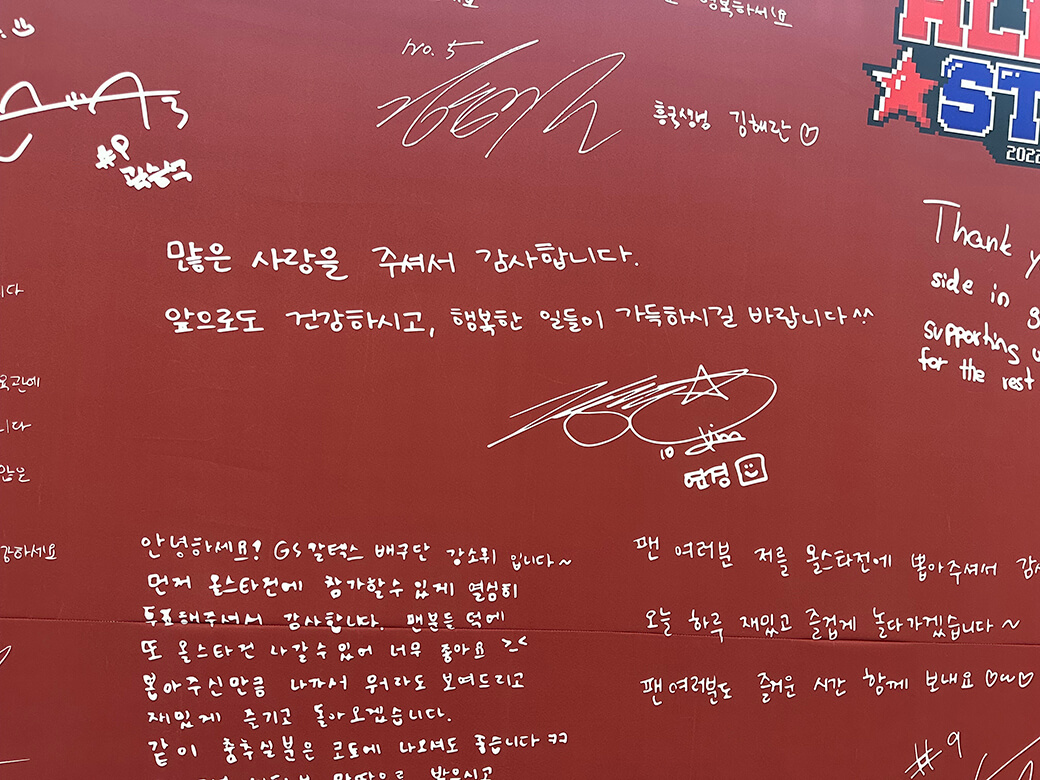 행복하세요
No. 5
흥국생명 김해란♡
ALL
ST
2022
3
#9
많은 사랑을 주셔서 감사합니다.
앞으로도 건강하시고, 행복한 일들이 가득하시길 바랍니다^^
10 Kim
연경
Thank y
side in
supporting
for the rest
니다
육관에
니다
않은
강하세요
안녕하세요! GS칼텍스 배구단 강소휘 입니다~
먼저 올스타전에 참가할수 있게 열심히
투표해주셔서 감사합니다. 팬분들 덕에
또 올스타전 나갈수있어 너무 좋아요 ><
뽑아주신만큼 나가서 뭐라도 보여드리고
재밌게 즐기고 돌아오겠습니다.
같이 춤추실분은 코트에 나오셔도 좋습니다 ㅋㅋ
팬 여러분 저를 올스타전에 뽑아주셔서 감사
오늘 하루 재밌고 즐겁게 놀다가겠습니다~
팬여러분도 즐거운 시간 함께 보내요 ♡ω♡
#9